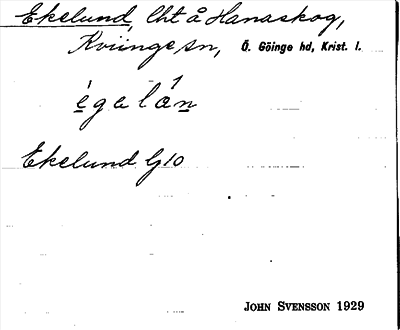 Ekelund, lht å Hanaskog,
Kviinge sn, Ö. Göinge hd, Krist. l.
égelán
Ekelund G10
JOHN SVENSSON 1929